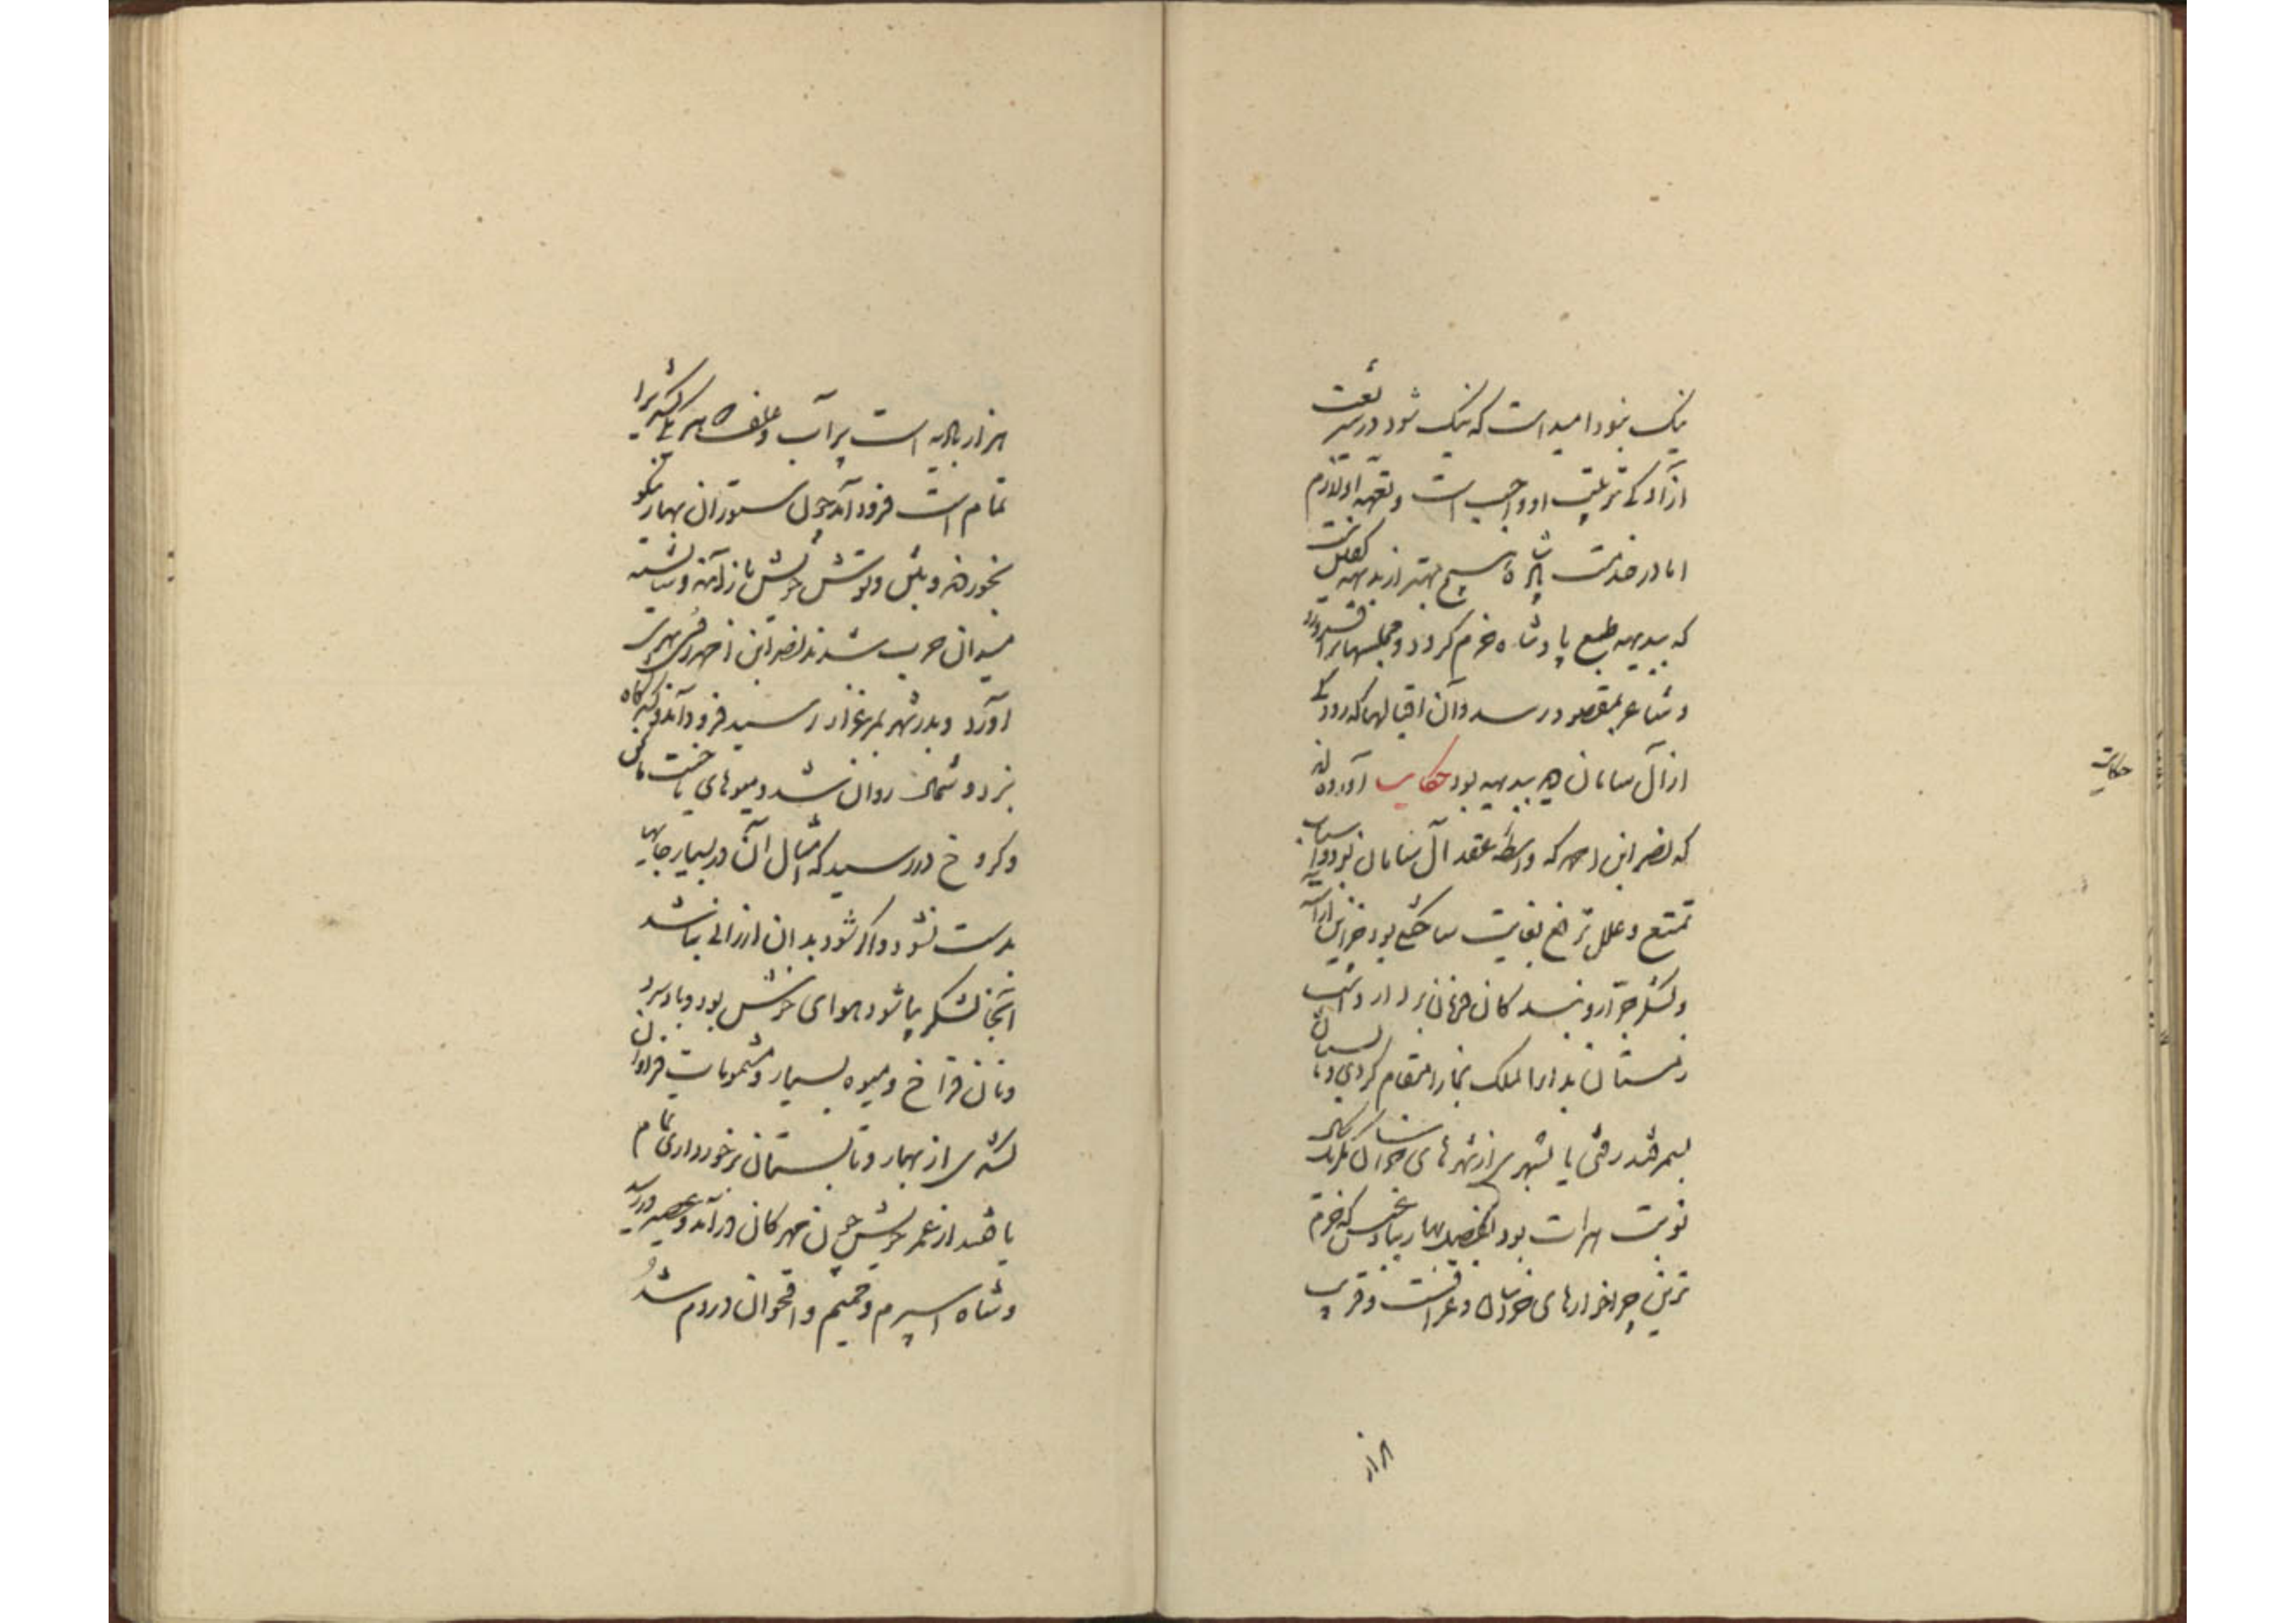 نیک نبود امید است که نیک شود در شریعت
آزادگی تربیت او واجب است و تعهد او لازم
اما در خدمت پادشاه هیچ بهتر از بدیهه گفتن نیست
که ببدیهه طبع پادشاه خرم گردد و مجلسها برافروزد
و شاعر بمقصود رسد و آن اقبالها که رودکی
از آل سامان دید ببدیهه بود حکایت آورده‌اند
که نصر ابن احمد که واسطه عقد آل سامان بود و اسباب
تمتع و علل ترفع بغایت ساختگی بود خزاین آراسته
و لشکر جرار و بندگان فرمان بردار داشت
زمستان بدار الملک بخارا مقام کردی و تابستان
بسمرقند رفتی یا بشهری از شهرهای خراسان مگر یک سال
نوبت هرات بود بفصل بهار ببادغیس که خرم
ترین چراخوارهای خراسان و عراقست و قریب
هزار
حکایت
هزار باره است پر آب و علف که هر یکی لشکری را
تمام است فرود آمد چون ستوران بهار نیکو
بخوردند و بتن و توش خویش باز آمدند و شایسته
میدان حرب شدند نصر ابن احمد روی بهری
آورد و بدر شهر بمرغزار رسید فرود آمد و لشکرگاه
بزد و شمال روان شد و میوهای مالن
و کروخ در رسید که امثال آن در بسیار جایها
بدست نشود و اگر شود بدان ارزانی نباشد
آنجا لشکر بیاسود و هوای خوش بود و باد سرد
و نان فراخ و میوه بسیار و مشمومات فراوان
لشکری از بهار و تابستان برخورداری تمام
یافتند از عمر خویش چون مهرگان درآمد و عصیر در رسید
و شاه اسپرم و حمیم و اقحوان در دم شد